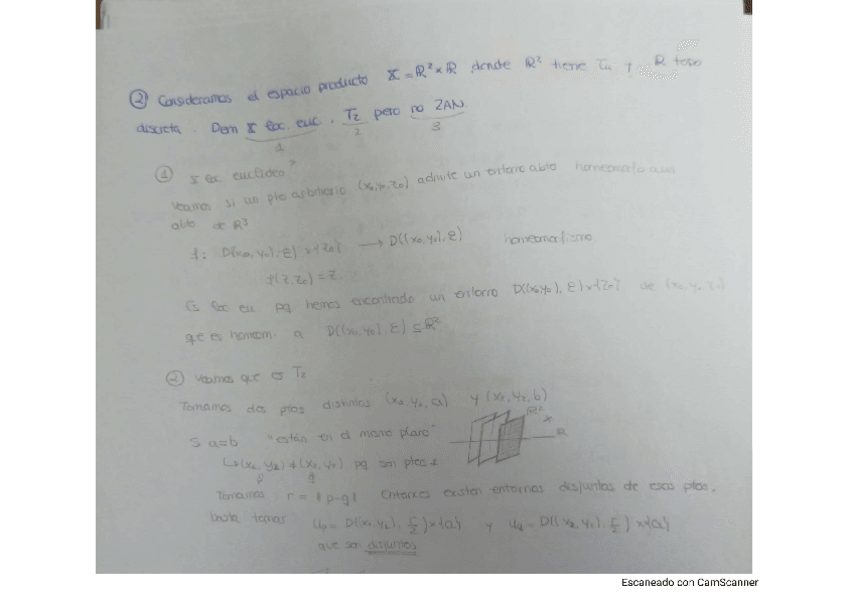 ② Consideramos el espacio producto X = ℝ² × ℝ donde ℝ² tiene Tu y ℝ topo
discreta. Dem X loc. euc. , T₂ pero no 2AN.
1 2 3
① X loc euclídeo?
Veamos si un pto arbitrario (x₀,y₀,z₀) admite un entorno abto homeomorfo a un
abto de ℝ³
f: D((x₀,y₀),ε) × {z₀} → D((x₀,y₀),ε) homeomorfismo
f(z,z₀) = z.
Es loc eu pq hemos encontrado un entorno D((x₀,y₀),ε) × {z₀} de (x₀,y₀,z₀)
que es homeom. a D((x₀,y₀),ε) ⊆ ℝ²
② Veamos que es T₂
Tomamos dos ptos distintos y
ℝ²
X
S a=b "están en el mismo plano" ℝ
pq son ptos ≠
p q
Tomamos r = |p-q| Entonces existen entornos disjuntos de esos ptos,
basta tomar y
que son disjuntos
Escaneado con CamScanner